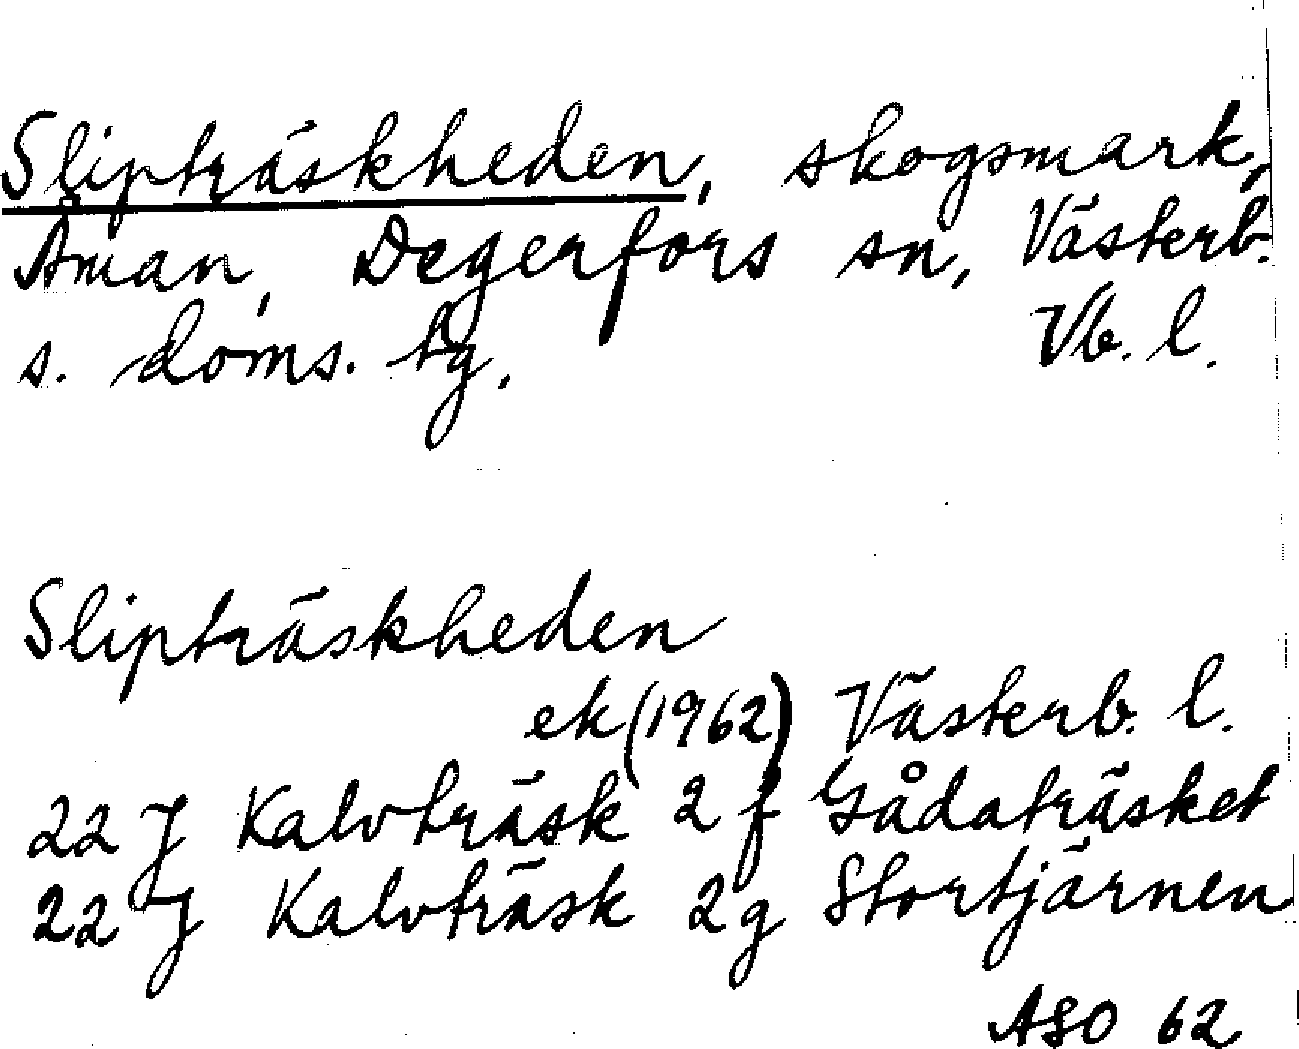 Slipträskheden, skogsmark,
Åman, Degerfors sn, Västerb.
s. doms. tg. Vb. l.
Slipträskheden
ek (1962) Västerb. l.
22 J Kalvträsk 2 f Gådaträsket
22 J Kalvträsk 2 g Stortjärnen
ASO 62